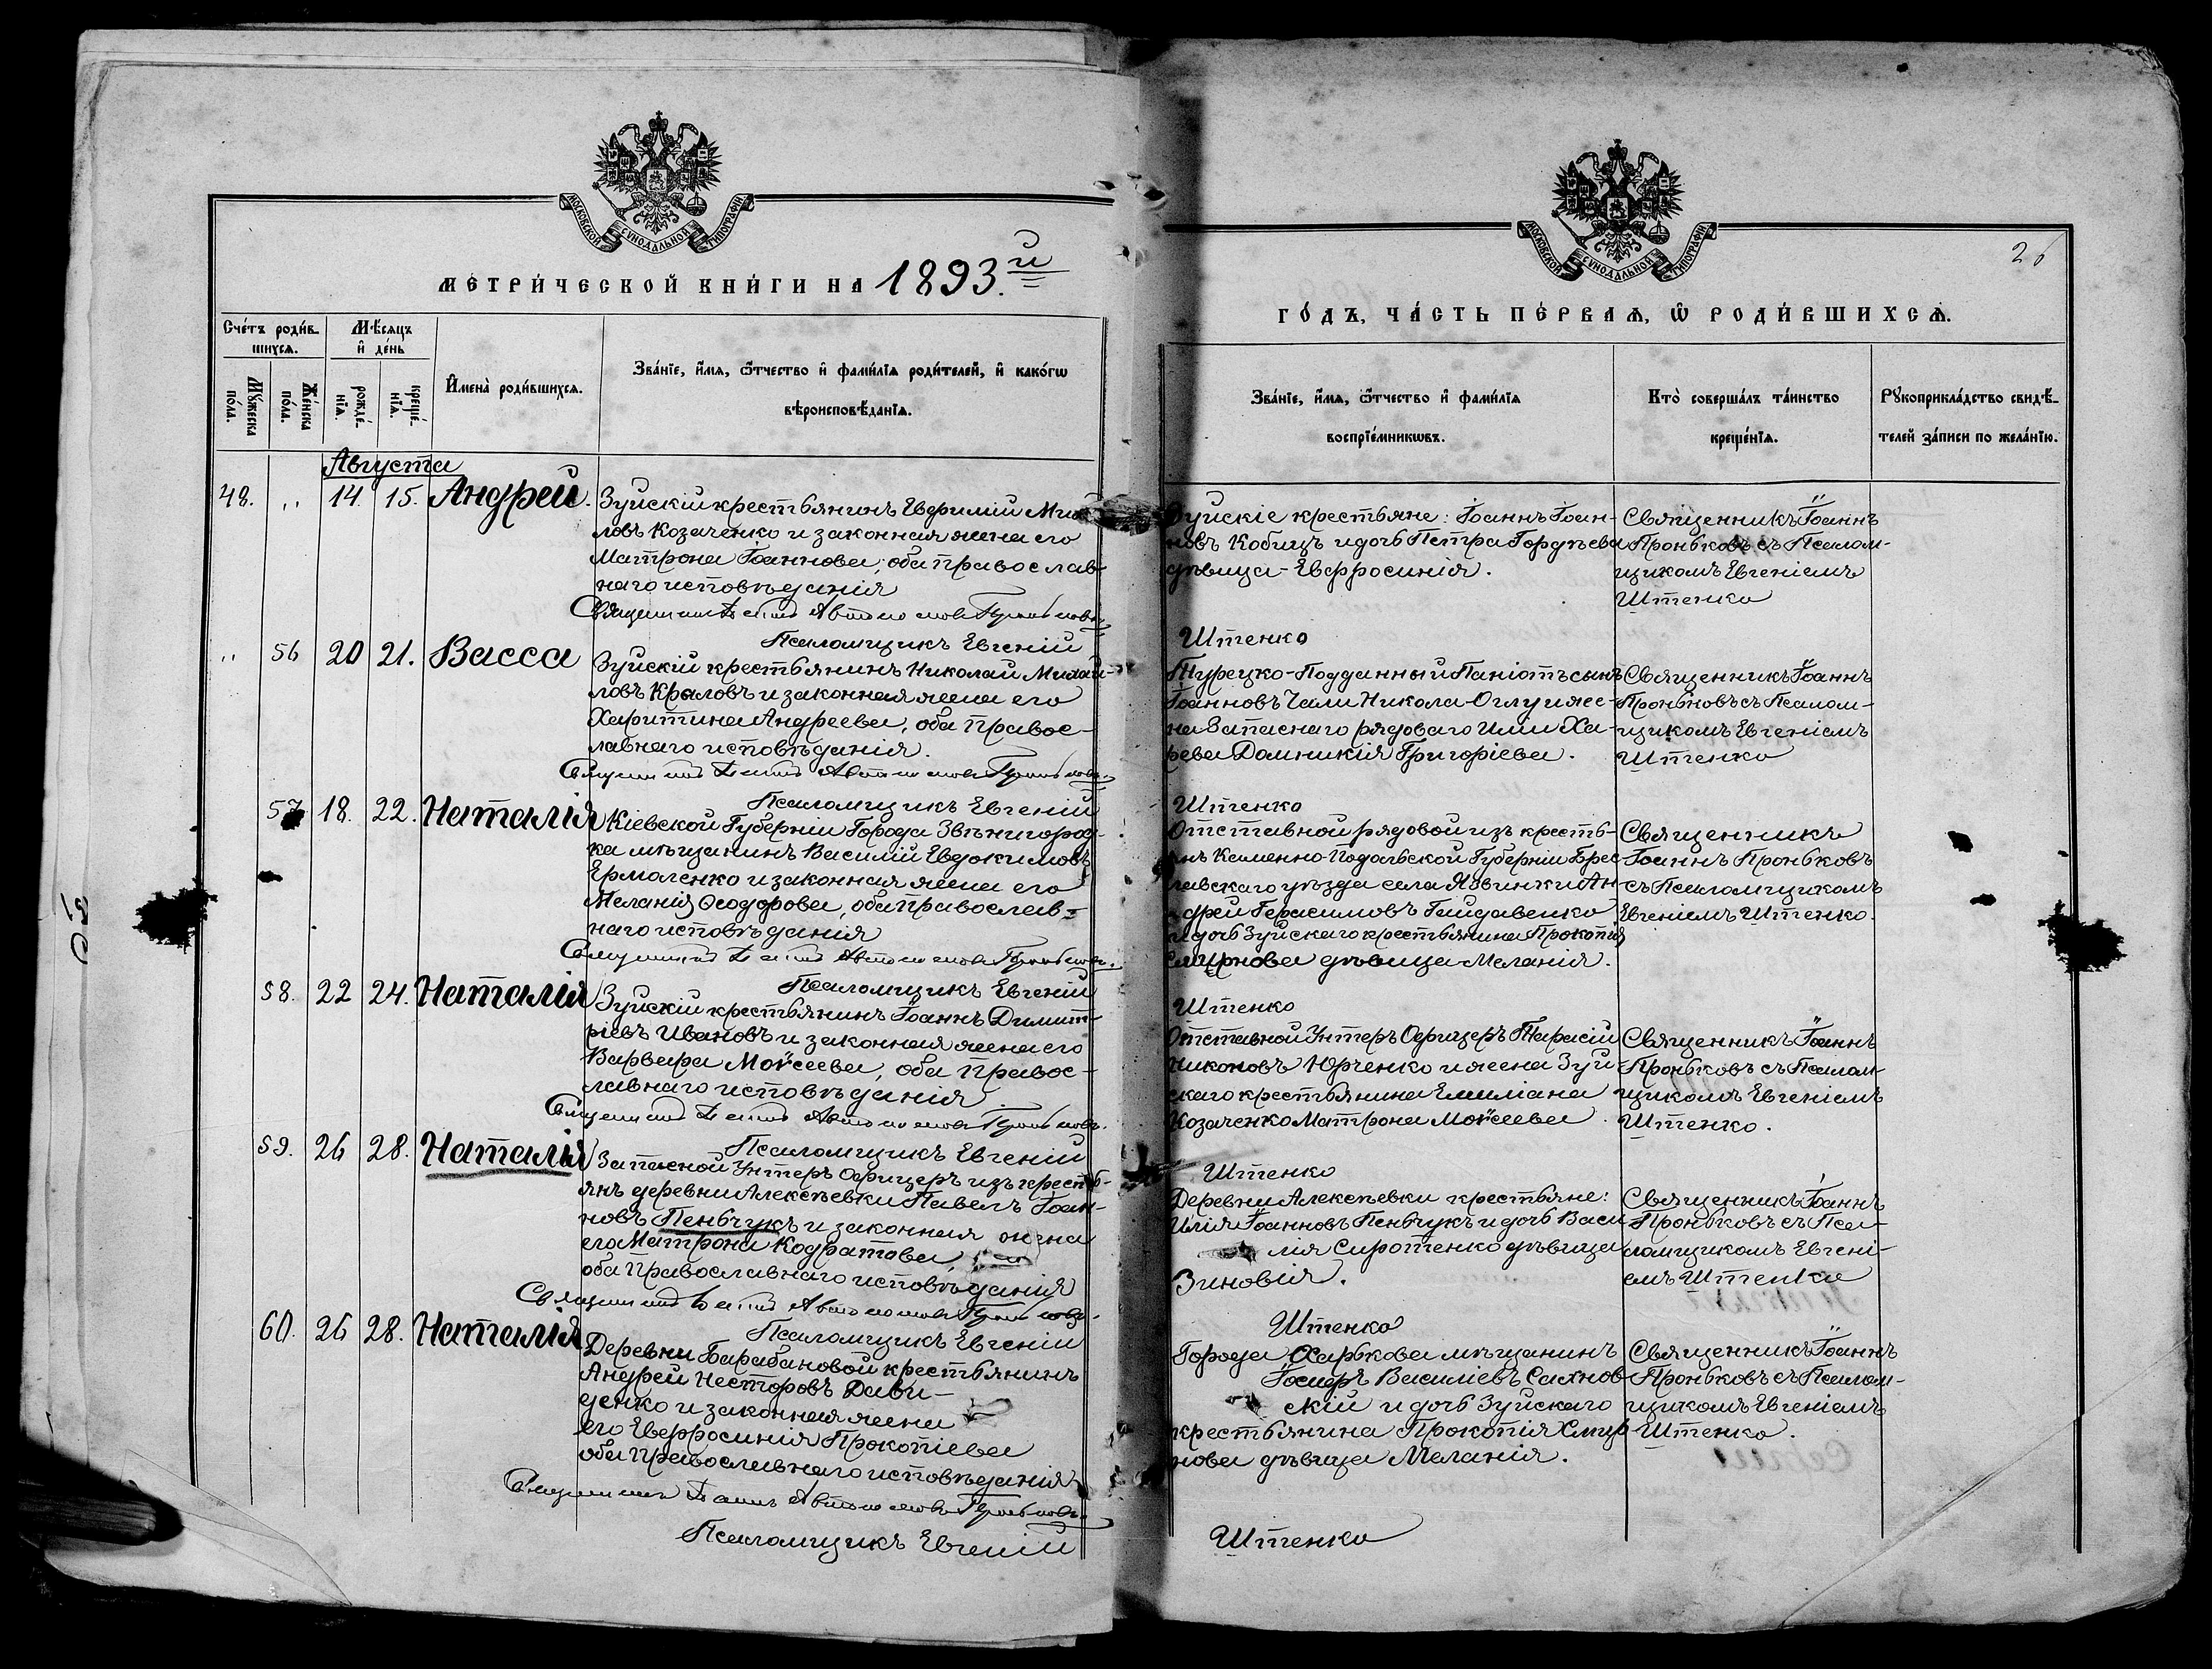 МОСКОВСКОЙ СУНОДАЛЬНОЙ ТИПОГРАФІИ
МЕТРИ́ЧЕСКОЙ КНИ́ГИ НА 1893.й
Сче́тъ роди́в-
шихся.
Мѣ́сяцъ
и҆ де́нь
Мꙋ́жеска по́ла.
Же́нска по́ла.
рожде́-нїя.
креще́-нїя.
И҆мена̀ роди́вшихся.
Зва́нїе, и҆́мя, ѻ҆́тчество и҆ фами́лїя роди́телей, и҆ како́гѡ
вѣроисповѣ́данїя.
Августа
48. „ 14. 15. Андрей.
Зуйскій крестьянинъ Евфимій Миха
ловъ Козаченко и законная жена его
Матрона Іоаннова, оба православ-
наго исповѣданія
Псаломщикъ Евгеній
„ 56 20 21. Васса
Зуйскій крестьянинъ Николай Михай-
ловъ Крыловъ и законная жена его
Харитина Андреева, оба правос-
лавнаго исповѣданія.
Псаломщикъ Евгеній
57 18. 22. Наталія
Кіевской Губерніи Города Звѣнигород-
ка мѣщанинъ Василій Евдокимовъ
Ермоленко и законная жена его
Меланія Ѳеодорова, оба православ-
наго исповѣданія
Псаломщикъ Евгеній
58. 22 24. Наталія
Зуйскій крестьянинъ Іоаннъ Димит-
ріевъ Ивановъ и законная жена его
Варвара Моѵсеева, оба правос-
лавнаго исповѣданія
Псаломщикъ Евгеній
59. 26 28. Наталія
Запасной Унтеръ Офицеръ изъ кресть-
янъ деревни Алексѣевки Павелъ Іоан-
новъ Пеньчукъ и законная жена
его Матрона Кодратова,
оба православнаго исповѣданія
Псаломщикъ Евгеній
60. 26 28. Наталія
Деревни Барабановой крестьянинъ
Андрей Несторовъ Дави-
денко и законная жена
его Евфросинія Прокопіева
оба православнаго исповѣданія
Псаломщикъ Евгеній
МОСКОВСКОЙ СУНОДАЛЬНОЙ ТИПОГРАФІИ
26
ГО́ДЪ, ЧА́СТЬ ПЕ́РВАЯ, Ѽ РОДИ́ВШИХСЯ.
Зва́нїе, и҆́мя, ѻ҆́тчество и҆ фами́лїя
воспрїе́мникѡвъ.
Кто̀ соверша́лъ та́инство
креще́нїя.
Рꙋкоприкла́дство свидѣ́-
телей за́писи по жела́нїю.
Зуйскіе крестьяне: Іоаннъ Іоан-
новъ Кобицъ и дочь Петра Гордѣева
дѣвица - Евфросинія.
Священникъ Іоаннъ
Проньковъ съ Псалом-
щикомъ Евгеніемъ
Штенко
Штенко
Турецко-Подданный Паніотъ сынъ
Іоанновъ Чали Никола-Оглу и же-
на Запаснаго рядоваго Иліи Ха-
рева Домникія Григоріева.
Священникъ Іоаннъ
Проньковъ съ Псалом-
щикомъ Евгеніемъ
Штенко
Штенко
Отставной рядовой изъ кресть-
янъ Каменно-Подольской Губерніи Брес
лавскаго уѣзда села Язвинки Ан-
дрей Герасимовъ Гайдавенко
и дочь Зуйскаго крестьянина Прокопія
Смирнова дѣвица Меланія.
Священникъ
Іоаннъ Проньковъ
съ Псаломщикомъ
Евгеніемъ Штенко.
Штенко
Отставной Унтеръ Офицеръ Тарасій
Никоновъ Юрченко и жена Зуй
скаго крестьянина Емиліана
Козаченко Матрона Моѵсеева.
Священникъ Іоаннъ
Проньковъ съ Псалом-
щикомъ Евгеніемъ
Штенко.
Штенко
Деревни Алексѣевки крестьяне:
Илія Іоанновъ Пеньчукъ и дочь Васи
лія Сиротенко дѣвица
Зиновія.
Священникъ Іоаннъ
Проньковъ съ Пса-
ломщикомъ Евгені-
емъ Штенко
Штенко
Города Харькова мѣщанинъ
Іосифъ Василіевъ Сахнов
скій и дочь Зуйскаго
крестьянина Прокопія Смир
нова дѣвица Меланія.
Священникъ Іоаннъ
Проньковъ съ Псалом-
щикомъ Евгеніемъ
Штенко.
Штенко